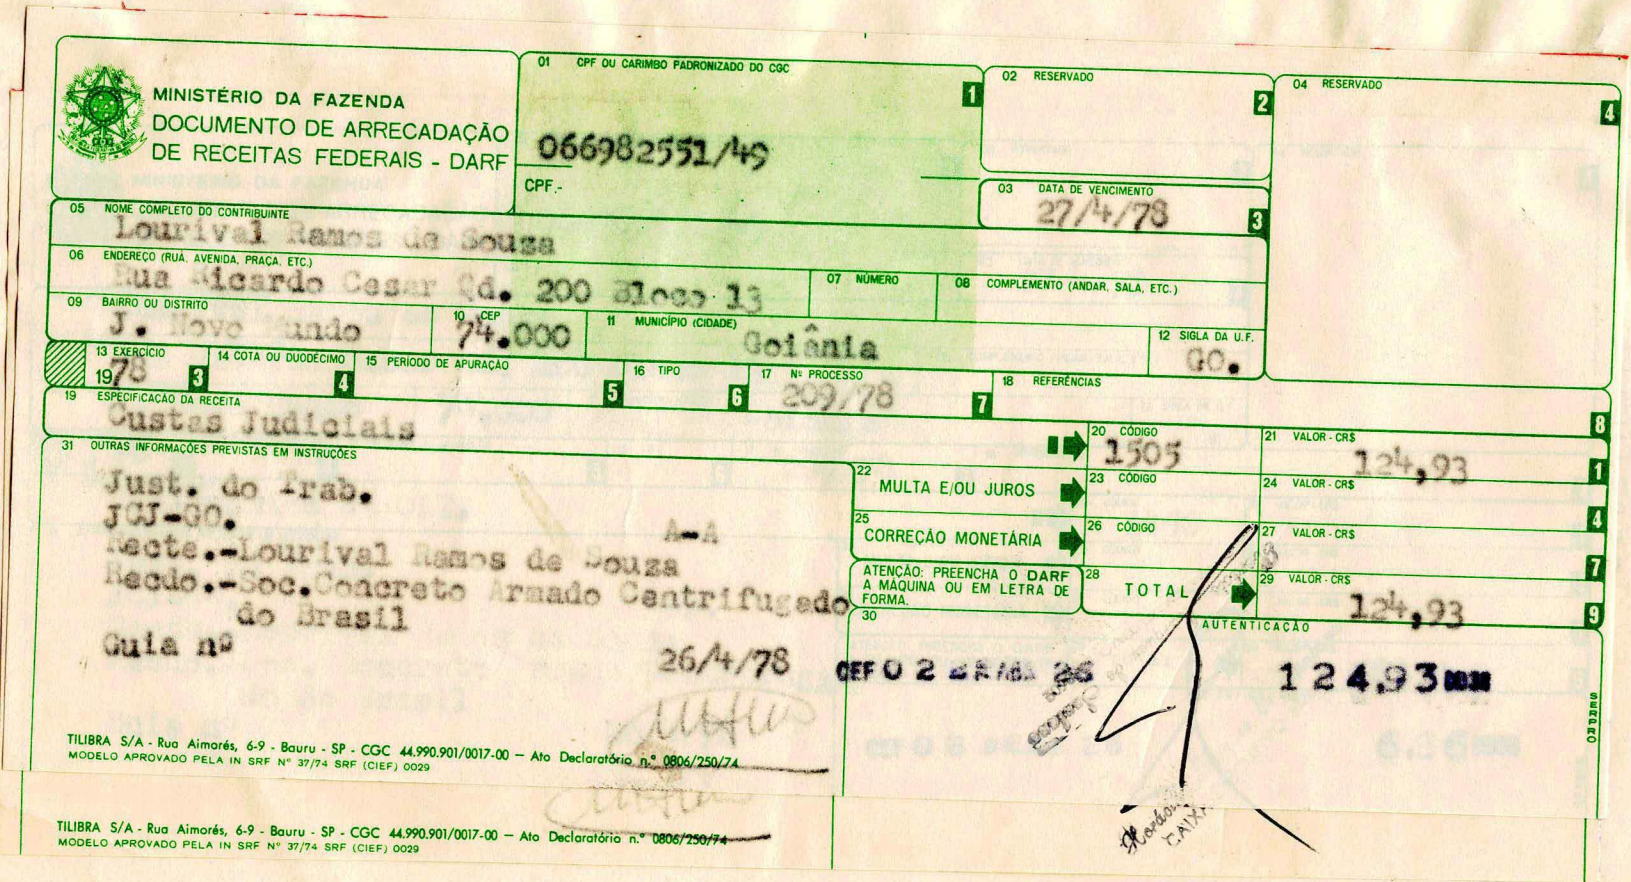 MINISTÉRIO DA FAZENDA
DOCUMENTO DE ARRECADAÇÃO
DE RECEITAS FEDERAIS - DARF
01 CPF OU CARIMBO PADRONIZADO DO CGC
1
066982551/49
CPF.-
02 RESERVADO
2
03 DATA DE VENCIMENTO
27/4/78
3
04 RESERVADO
4
05 NOME COMPLETO DO CONTRIBUINTE
Lourival Ramos de Souza
06 ENDEREÇO (RUA, AVENIDA, PRAÇA, ETC.)
Rua Ricardo Cesar Qd. 200 Bloco 13
07 NÚMERO
08 COMPLEMENTO (ANDAR, SALA, ETC.)
09 BAIRRO OU DISTRITO
J. Novo Mundo
10 CEP
74.000
11 MUNICÍPIO (CIDADE)
Goiânia
12 SIGLA DA U.F.
GO.
13 EXERCÍCIO
1978
3
14 COTA OU DUODÉCIMO
4
15 PERÍODO DE APURAÇÃO
5
16 TIPO
6
17 Nº PROCESSO
209/78
7
18 REFERÊNCIAS
8
19 ESPECIFICAÇÃO DA RECEITA
Custas Judiciais
20 CÓDIGO
1505
21 VALOR - CR$
124,93
1
22 MULTA E/OU JUROS
23 CÓDIGO
24 VALOR - CR$
4
25 CORREÇÃO MONETÁRIA
26 CÓDIGO
27 VALOR - CR$
7
ATENÇÃO: PREENCHA O DARF
A MÁQUINA OU EM LETRA DE
FORMA.
28 TOTAL
29 VALOR - CR$
124,93
9
31 OUTRAS INFORMAÇÕES PREVISTAS EM INSTRUÇÕES
Just. do Trab.
JCJ-GO. A-A
Recte.-Lourival Ramos de Souza
Recdo.-Soc.Concreto Armado Centrifugado
do Brasil
Guia nº 26/4/78
30 AUTENTICAÇÃO
CEF 0 2 26 124,93
SERPRO
TILIBRA S/A - Rua Aimorés, 6-9 - Bauru - SP - CGC 44.990.901/0017-00 — Ato Declaratório n.º 0806/250/74
MODELO APROVADO PELA IN SRF Nº 37/74 SRF (CIEF) 0029
TILIBRA S/A - Rua Aimorés, 6-9 - Bauru - SP - CGC 44.990.901/0017-00 — Ato Declaratório n.º 0806/250/74
MODELO APROVADO PELA IN SRF Nº 37/74 SRF (CIEF) 0029